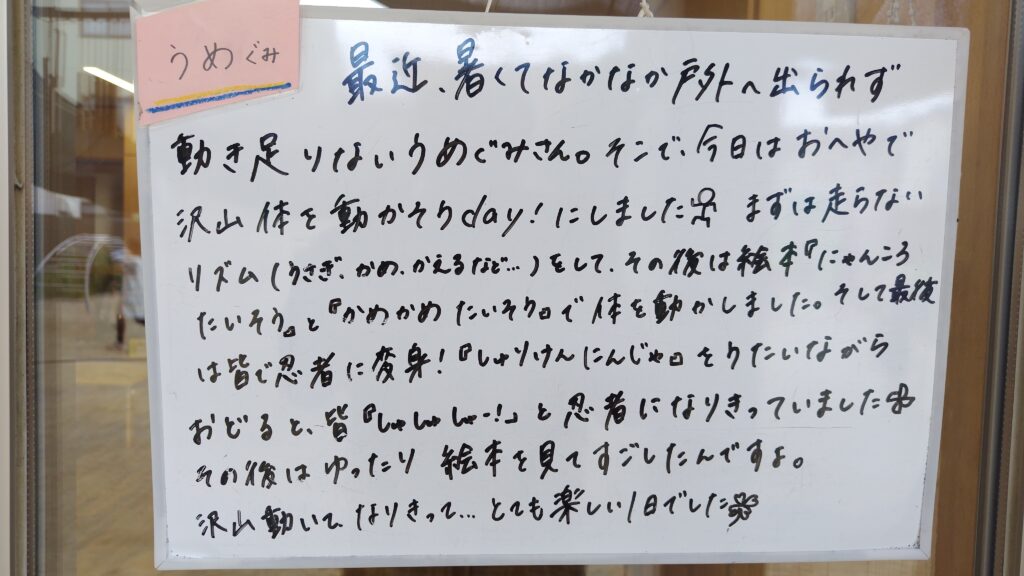 うめぐみ
最近、暑くてなかなか戸外へ出られず
動き足りないうめぐみさん。そこで、今日はおへやで
沢山体を動かそうday!にしました まずは走らない
リズム(うさぎ、かめ、かえるなど…)をして、その後は絵本『にゃんころ
たいそう』と『かめかめたいそう』で体を動かしました。そして最後
は皆で忍者に変身!『しゅりけんにんじゃ』をうたいながら
おどると、皆『しゅしゅしゅー!』と忍者になりきっていました
その後はゆったり 絵本を見てすごしたんですよ。
沢山動いて、なりきって…とても楽しい1日でした